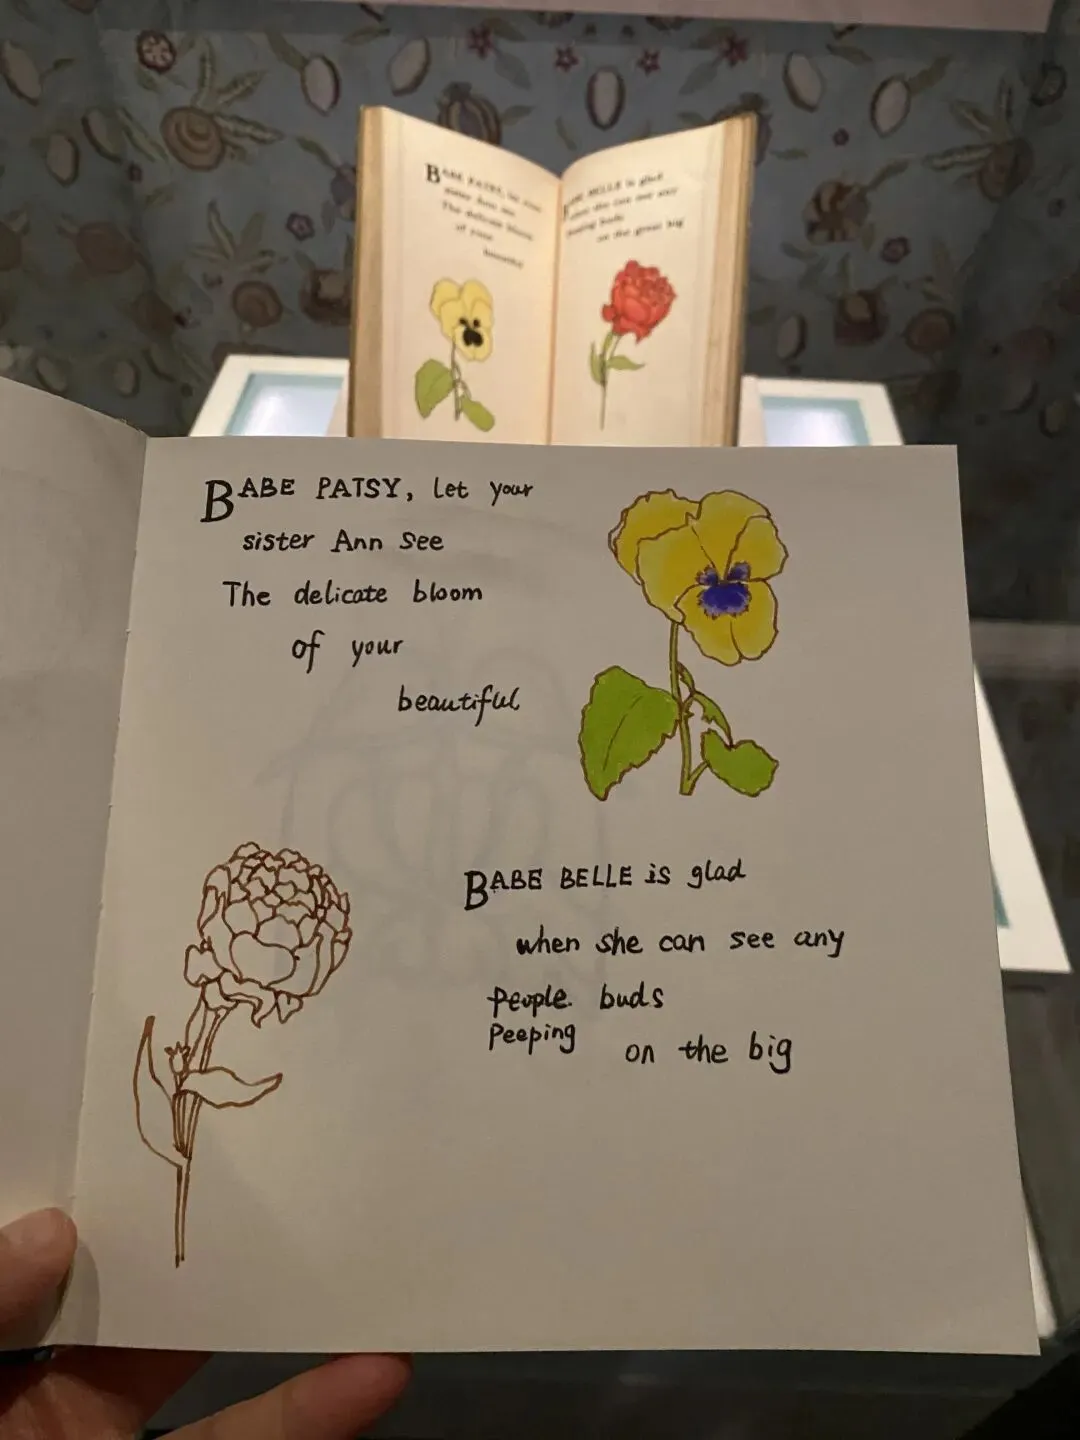 BABE PATSY, let your
sister Ann see
The delicate bloom
of your
beautiful
BABE BELLE is glad
when she can see any
people. buds
Peeping
on the big
BABE PATSY, let your
sister Ann see
The delicate bloom
of your
BELLE is glad
when she can see any
buds
on the great big